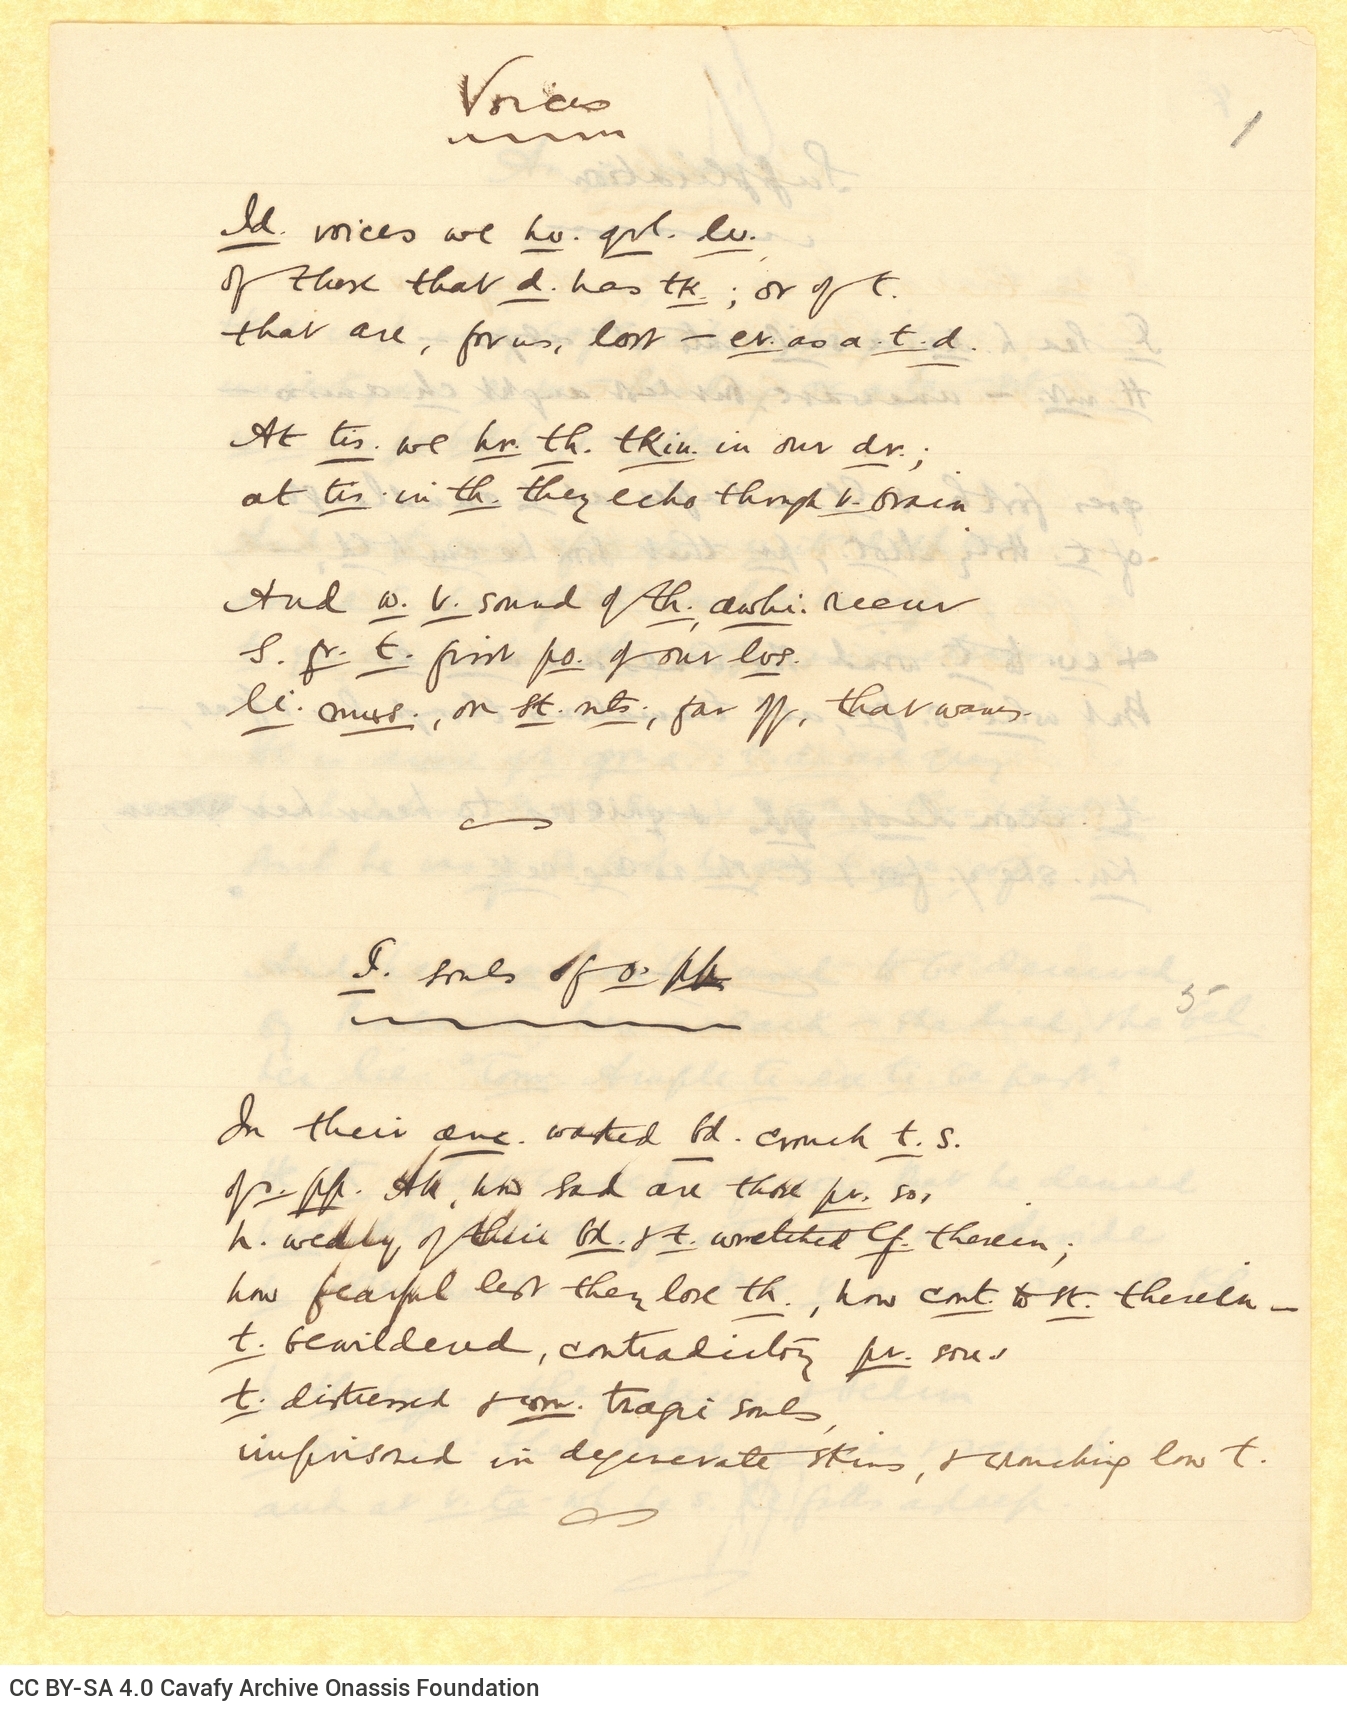 Voices
1
Id. voices we hv. grl. lv.
of those that d. has tk.; or of t.
that are, for us, lost – ev. as a. t. d.
At tis. we hr. th. tkin. in our dr.;
at tis. in th. they echo through t. brain.
And w. t. sound of th. awhi. recur
s. fr. t. first po. of our lvs.
li. mus., on st. nts., far off, that wanes.
T. souls of o. pp.
5
In their anc. wasted bd. crouch t. s.
of o. pp. Ah, how sad are those pr. so,
h. weary of their bd. & t. wretched lf. therein;
how fearful lest they lose th., how cont. to st. therein –
t. bewildered, contradictory pr. sous
t. distressed & com. tragic souls,
imprisoned in degenerate skins, & crouching low t.
CC BY-SA 4.0 Cavafy Archive Onassis Foundation